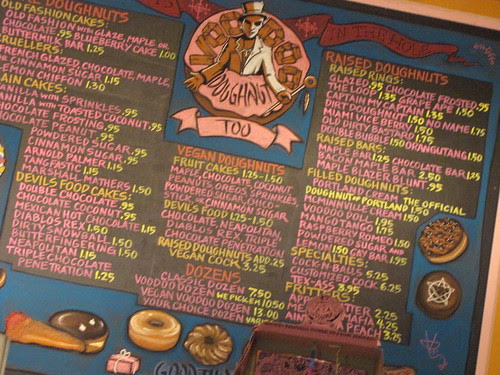 DOUGHNUTS
OLD FASHION CAKES:
OLD FASHION WITH GLAZE, MAPLE, OR
CHOCOLATE .95 BLUEBERRY CAKE 1.00
BUTTERMILK BAR 1.25
CRUELLERS:
FRENCH: GLAZED, CHOCOLATE, MAPLE,
CINNAMON SUGAR 1.15
LEMON CHIFFON 1.30
CAKES:
VANILLA WITH SPRINKLES .95
VANILLA WITH TOASTED COCONUT .95
CHOCOLATE FROSTING .95
CHOCOLATE PEANUT .95
POWDERED SUGAR .95
CINNAMON SUGAR .95
ARNOLD PALMER 1.15
TANGFASTIC 1.15
MARSHALL MATHERS 1.50
DEVILS FOOD CAKES:
DOUBLE CHOCOLATE .95
CHOCOLATE COCONUT .95
MEXICAN HOT CHOCOLATE 1.15
DIABLOS REX 1.50
DIRTY SNOWBALL 1.50
BUTTERFINGERING 1.50
NEAPOLITAN 1.15
TRIPLE CHOCOLATE
PENETRATION 1.25
VOODOO
DOUGHNUT
TOO
VEGAN DOUGHNUTS
FRUIT CAKES 1.25-1.50
MAPLE, CHOCOLATE, COCONUT
PEANUTS, OREOS, SPRINKLES
POWDERED SUGAR, CHOCO-
CINNAMON SUGAR
DEVILS FOOD 1.25-1.50
CHOCOLATE, NEAPOLITAN,
DIABLOS REX, TRIPLE
CHOCOLATE PENETRATION
RAISED DOUGHNUTS ADD .25
VEGAN COCK 5.25
DOZENS
CLASSIC DOZEN 7.50
VOODOO DOZEN WE PICK EM 10.50
VEGAN VOODOO DOZEN 13.00
YOUR CHOICE DOZEN
GOOD THINGS
IN THE HOLE
RAISED DOUGHNUTS
RAISED RINGS:
GLAZED .95 CHOCOLATE FROSTED .95
THE LOOP 1.35 GRAPE APE 1.50
DIRT DOUGHNUT 1.50 NO NAME 1.75
MIAMI VICE BERRY 1.50
OLD DIRTY BASTARD 1.75
DOUBLE BUBBLE 1.50 ORANGUTANG 1.50
RAISED BARS:
MAPLE BAR 1.25 CHOCOLATE BAR 1.25
BACON MAPLE BAR 2.50
MAPLE BLAZER BLUNT .95
FILLED DOUGHNUTS:
PORTLAND CREAM THE OFFICIAL
DOUGHNUT OF PORTLAND 1.50
MCMINNVILLE CREAM 1.50
VOODOO DOLL 1.95
MANGO TANGO 1.75
RASPBERRY ROMEO 1.50
POWDERED SUGAR
LEMON 1.50 GAY BAR 1.95
SPECIALTIES:
COCK-N-BALLS 5.25
CUSTOMIZED COCK 6.25
TEX-ASS 3.95
FRITTERS:
APPLE FRITTER 2.25
4.25
PEACH 3.25